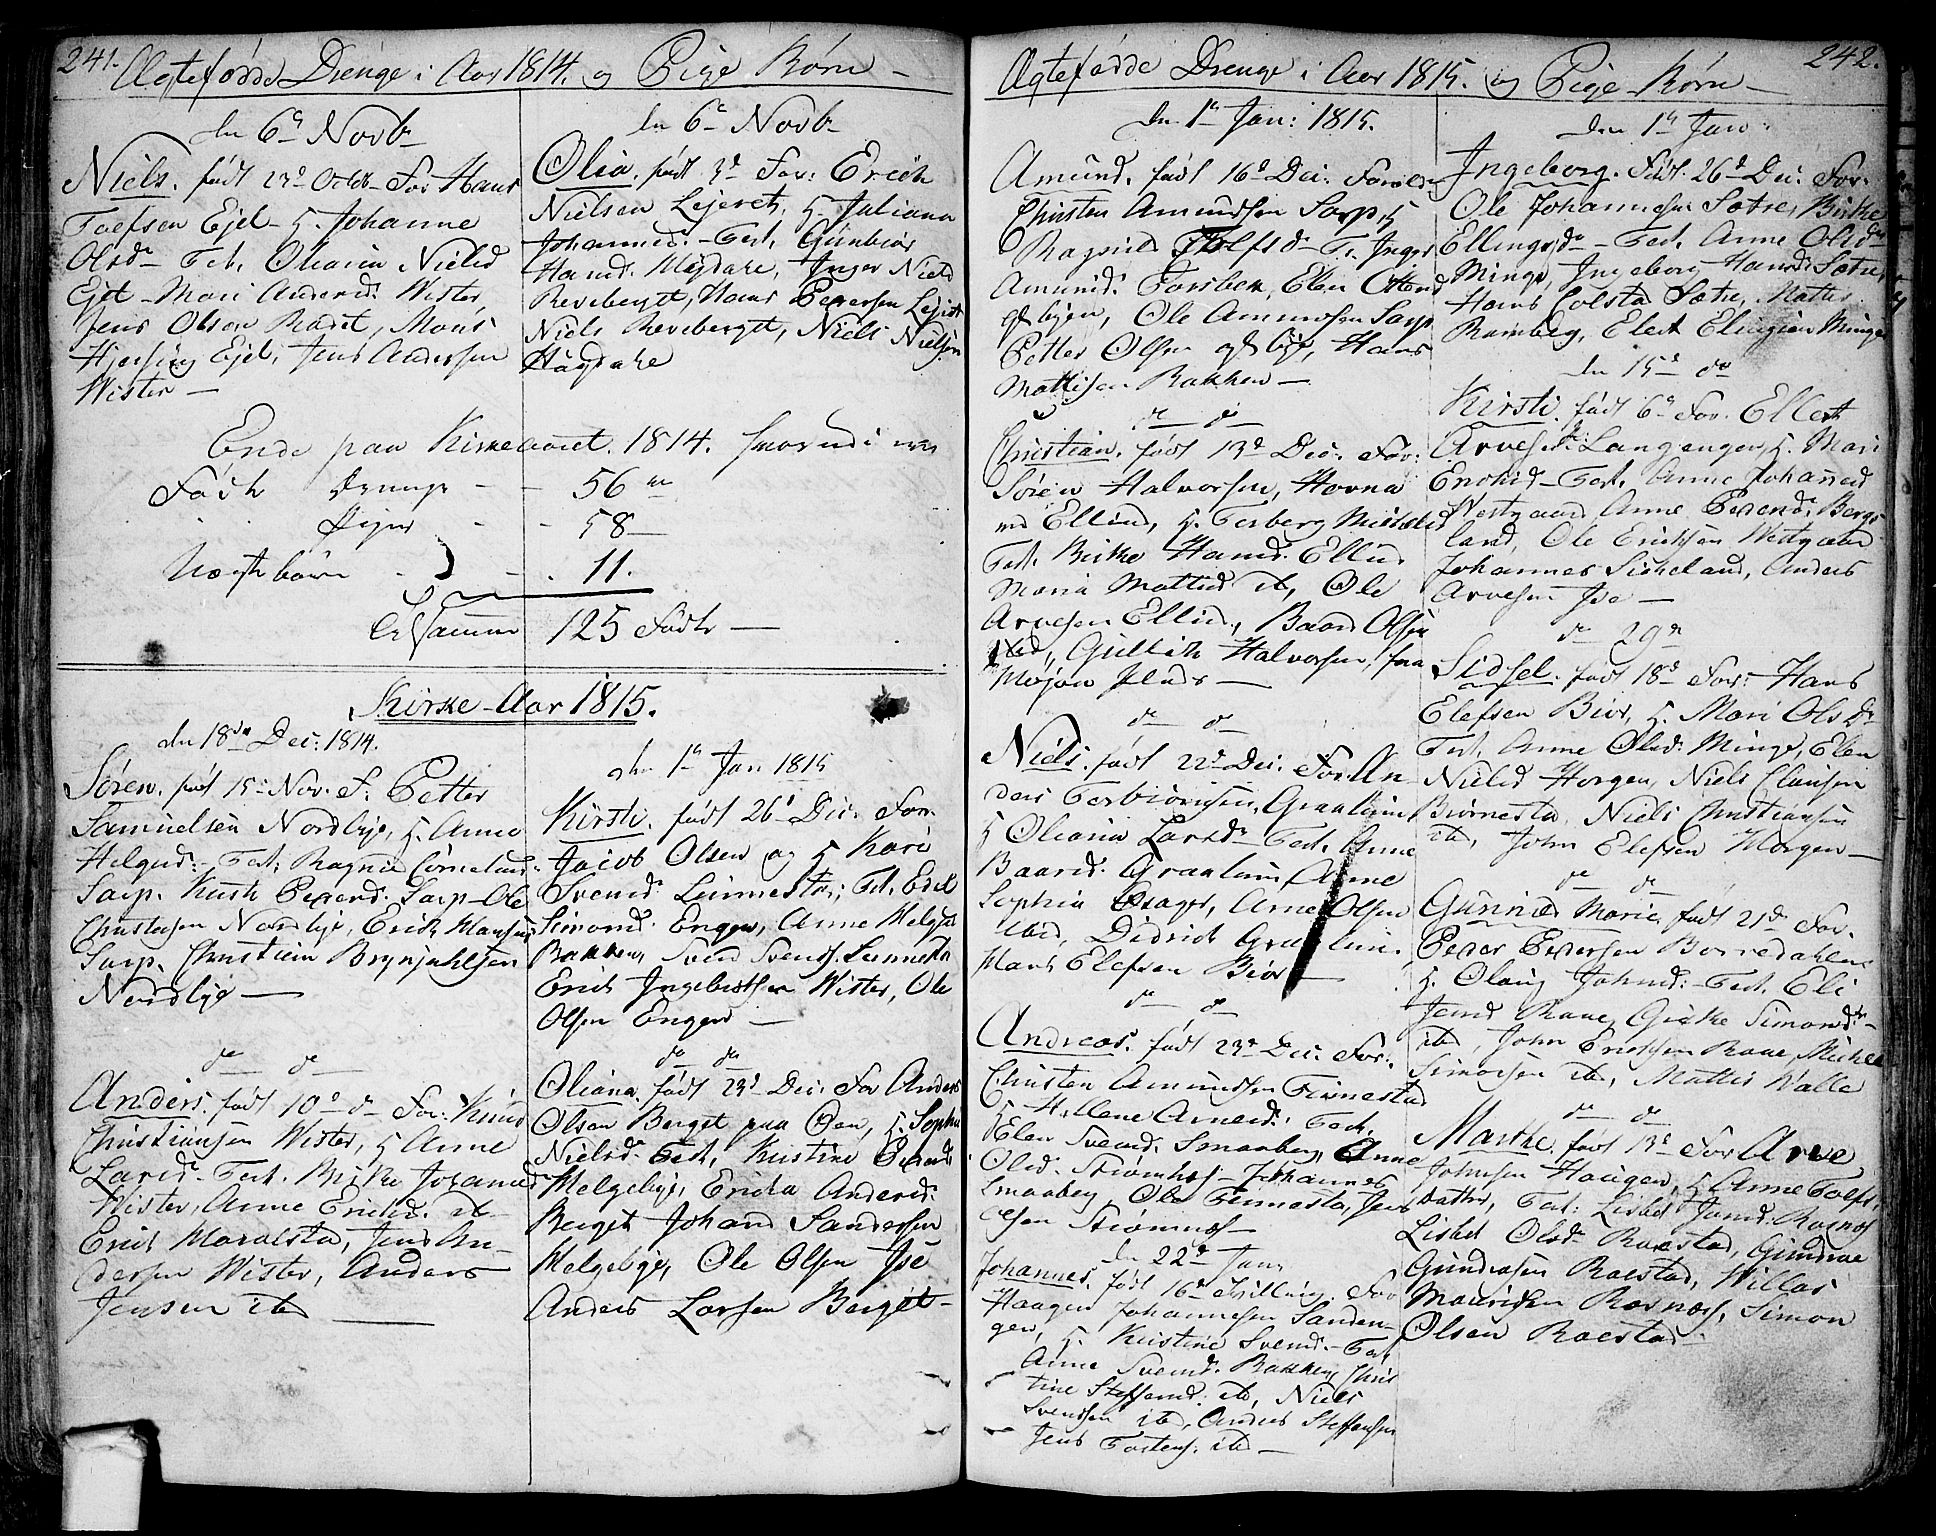 241.
Ægtefødde Drenge i Aar 1814. og Pige Børn –
den 6te Novb
Niels. født 23d Octob– For Hans
Toefsen Ejel – H. Johanne
Olsdr Test. Oliana Nielsd
Ejel – Mari Andersd. Wister,
Jens Olsen Radet, Mons
Hjersing Ejel, Jens Andersen
Wister –
den 6te Novb
Olia. født 3d For: Erich
Nielsen Lejeret, H. Juliana
Johannesd. – Test. Gunbior
Hansd. Høgdahl, Inger Nielsd
Reveberget, Hans Pedersen Lejeret
Niels Reveberget, Niels Nielsen
Høgdahl
Ende paa Kirkeaaret 1814.
Født Drenge – – 56
Piger – – 58 –
Uægte børn – – 11.
Er Summa 125 Født –
Kirke-Aar 1815.
den 18de Dec: 1814.
Søren. født 15d Nov. F: Petter
Samuelsen Nordbye, H. Anne
Helgesd. – Test: Ragnil Cornelend.
Sarp. Kirsti Pedersd. Sarp – Ole
Christensen Nordbye, Erich Hansen
Sarp. Christian Brynjuhlsen
Nordbye –
do do
Anders. født 10d do For: Knud
Christiansen Wister, H Anne
Larsdr. Test. Birthe Johansd
Wister, Anne Erichsd. ibd
Erich Maralsta, Jens An–
dersen Wister, Anders
Jensen ibd –
den 1te Jan 1815
Kirsti. født 26d Dec: For.
Jacob Olsen og H Kari
Svensd. Lunnesta; Test. Edel
Simonsd. Engen, Anne Helgesd
Bakken, Svend Svends. Lunnesta
Erich Ingebretsen Wister, Ole
Olsen Engen –
do do
Oliana. født 23d Dec: For Anders
Olsen Berget paa Øen, H. Sophia
Nielsdr. Test, Kirstine Pedersd
Helgebye, Ericka Andersd:
Berget Johans Sandersen
Helgebye, Ole Olsen Ise
Anders Larsen Berget –
242.
Ægtefødde Drenge i Aar 1815. og Pige Børn –
den 1te Jan: 1815.
Amund. født 16d Dec: Foreldr
Christen Amundsen Sarp, H
Ragnild Tolfsdr – T: Inger
Amundsd. Torsbek, Elen Ottersd
byen, Ole Ammosen Sarp
Petter Olsen , Hans
Mattisen Bakken –
do do
Christian. født 13d Dec. For:
Søren Halvorsen, Hovna
Ellind, H. Torberg Mickelsd
Test. Birthe Hansd. Ellind
Maria Mattisd ib, Ole
Arvesen Ellind, Baard Olsen
ibd, Gullich Halvorsen, fra
Mosjøn –
do do
Niels. født 22d Dec: For. An–
ders Torbiørnsen, Graalum
H Oliana Larsdr Test, Anne
Baardsd. Graalum Anne
Sophia Prager, Arne Olsen
ibid, Didrich Graalum.
Hans Elefsen Biør –
do do
Andreas. født 23d Dec: For:
Christen Amundsen Tinnestad
H. Hellene Arnesd: Test.
Elen Svensd. Smaaberg, Anne
Olsd. Strømnes, Johannes
Smaaberg, Ole Tennesta, Jens
Olsen Strømnes –
den 22d Jan.
Johannes. født 16d For
Haagen Johannesen Sanden–
gen, H Kirstine Svensd. – Test
Anne Svensd. Bakken, Chris
tine Steffensd: ib, Niels
Svendsen ibd, Anders Steffensen
Jens Tostens: ibd –
den 1te Jan:
Ingeborg. Født. 26d Dec. For.
Ole Johannesen Sætre, Birthe
Ellingsdr – Test. Anne Olsdr
Minge, Ingeborg Hansd: Sætre
Hans Colsta Sætre, Mattis
Ramberg, Elert Elingsen Minge
den 15d do
Kirsti. født 6d For. Ellert
Arvesen Langengen, H. Mari
Erichsd – Test. Anne Johansd
Westgaard Anne Pedersd. Bergs
land, Ole Erichsen Westgaard
Johannes Sickeland, Anders
Arvesen Ise –
do 29d
Sidsel. født 18d For: Hans
Elefsen Biør, H. Mari Olsdr
Test. Anne Olsd: Minge, Elen
Nielsd Horgen, Niels Clausen
Biørnesta, Niels Christiansen
ibd, John Elefsen Horgen –
do do
Gunnild Marie, født 21d For.
Peder Pedersen Borredahlen
H. Olaug Johnsd: – Test. Eli
Jensd Raae, Giske Simonsdr –
ibd, John Erichsen Raae, Michel
Simonsen ibd, Mattis Walle
do do
Marthe. født 13d For Arve
Johnsen Haugen, H Anne Tolfs.
datter, Test. Lisbet Jonsd: Rosnæs
Lisbet Olsdr Raestad, Gundroe
Gundrosen Raestad, Willas
Mauridsen Rosnæs, Simon
Olsen Raestad.